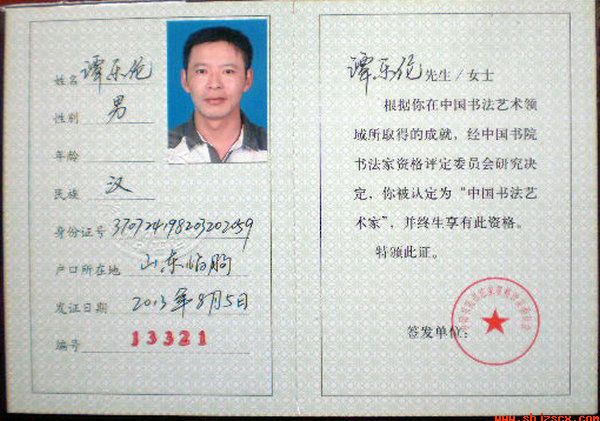 姓名 谭乐伦
性别 男
年龄
民族 汉
身份证号
户口所在地 山东临朐
发证日期 2013年8月5日
编号 13321
谭乐伦 先生/女士
根据你在中国书法艺术领
域所取得的成就，经中国书院
书法家资格评定委员会研究决
定，你被认定为“中国书法艺
术家”，并终生享有此资格。
特颁此证。
签发单位：
www.shjzscx.com